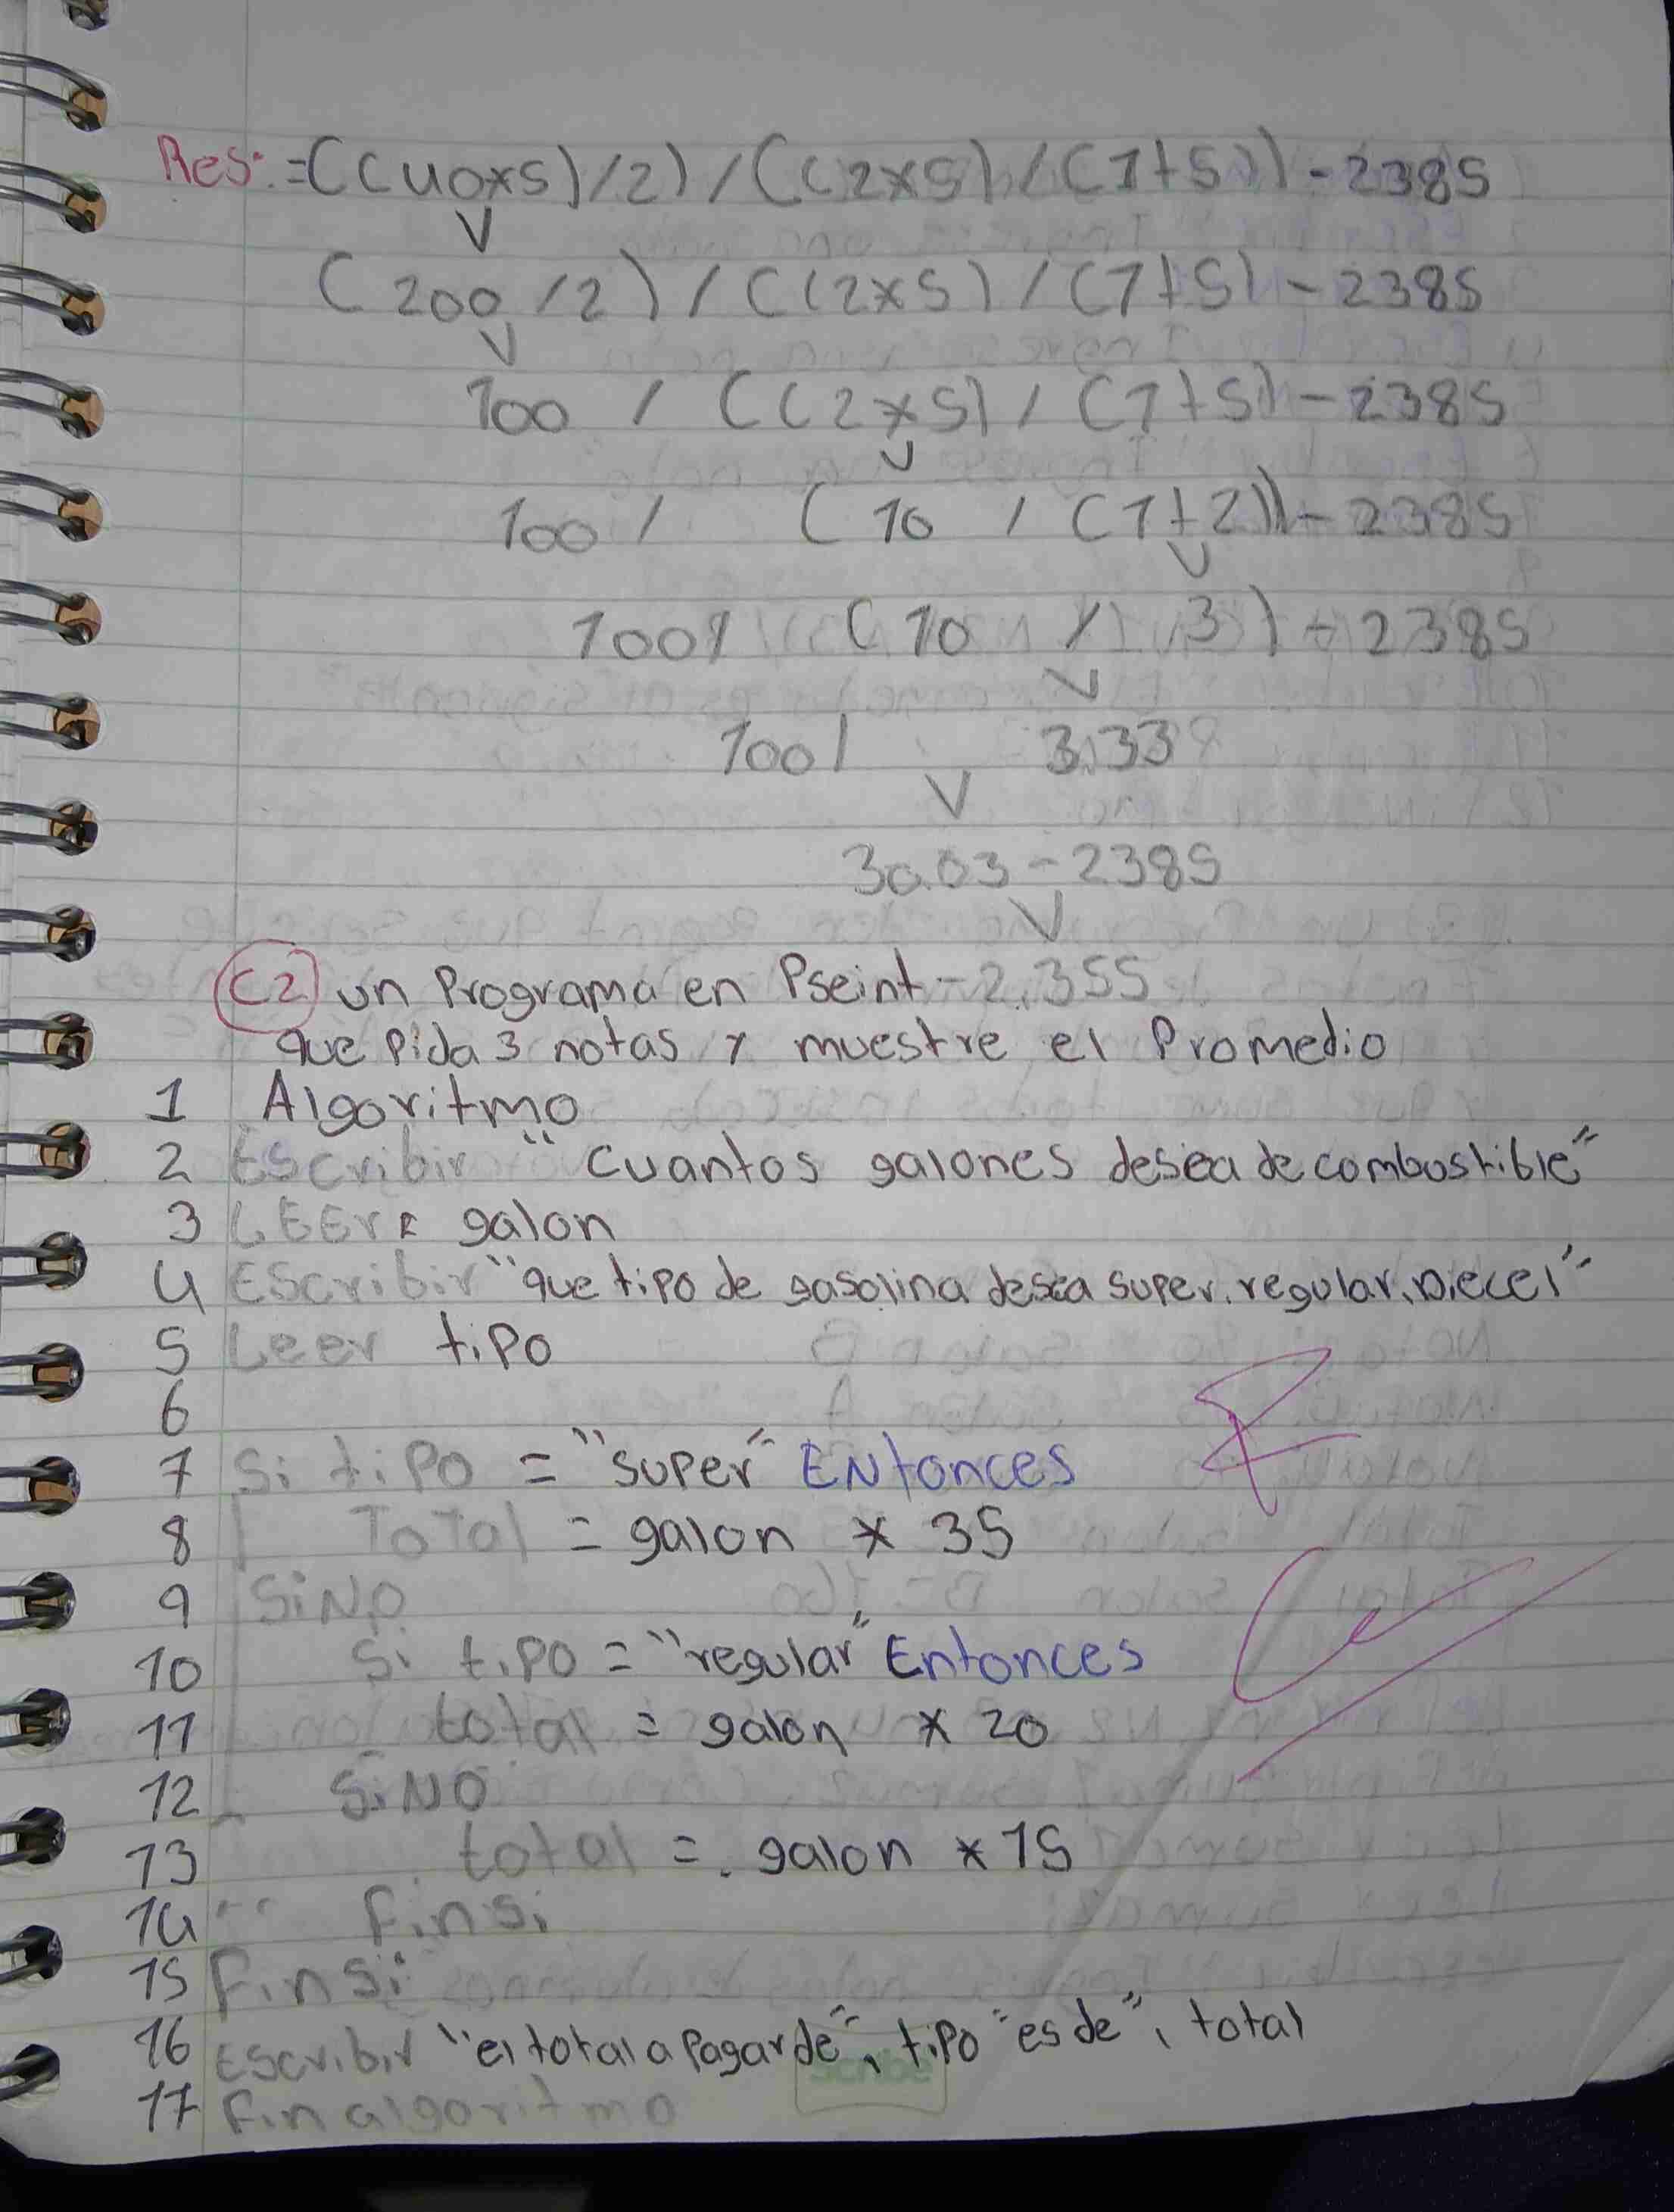 Res: =((40x5)/2)/((2x5)/(1+5))-2385
(200/2)/((2x5)/(1+5)-2385
100 / ((2x5)/(1+5)-2385
100/ (10 / (1+2))-2385
100/ (10 / 3)-2385
100/ 3.333
30.03-2385
C2) un Programa en Pseint -2.355
que Pida 3 notas y muestre el Promedio
1 Algoritmo
2 Escribir "cuantos galones desea de combustible"
3 LEEr galon
4 Escribir "que tipo de gasolina desea super, regular, Diecel"
5 Leer tipo
6
7 Si tipo = "super" ENtonces
8 Total = galon * 35
9 SiNo
10 Si tipo = "regular" Entonces
11 total = galon * 20
12 SiNO
13 total = galon * 15
14 finsi
15 finsi
16 Escribir "el total a Pagar de", tipo "es de", total
17 finalgoritmo
scribe